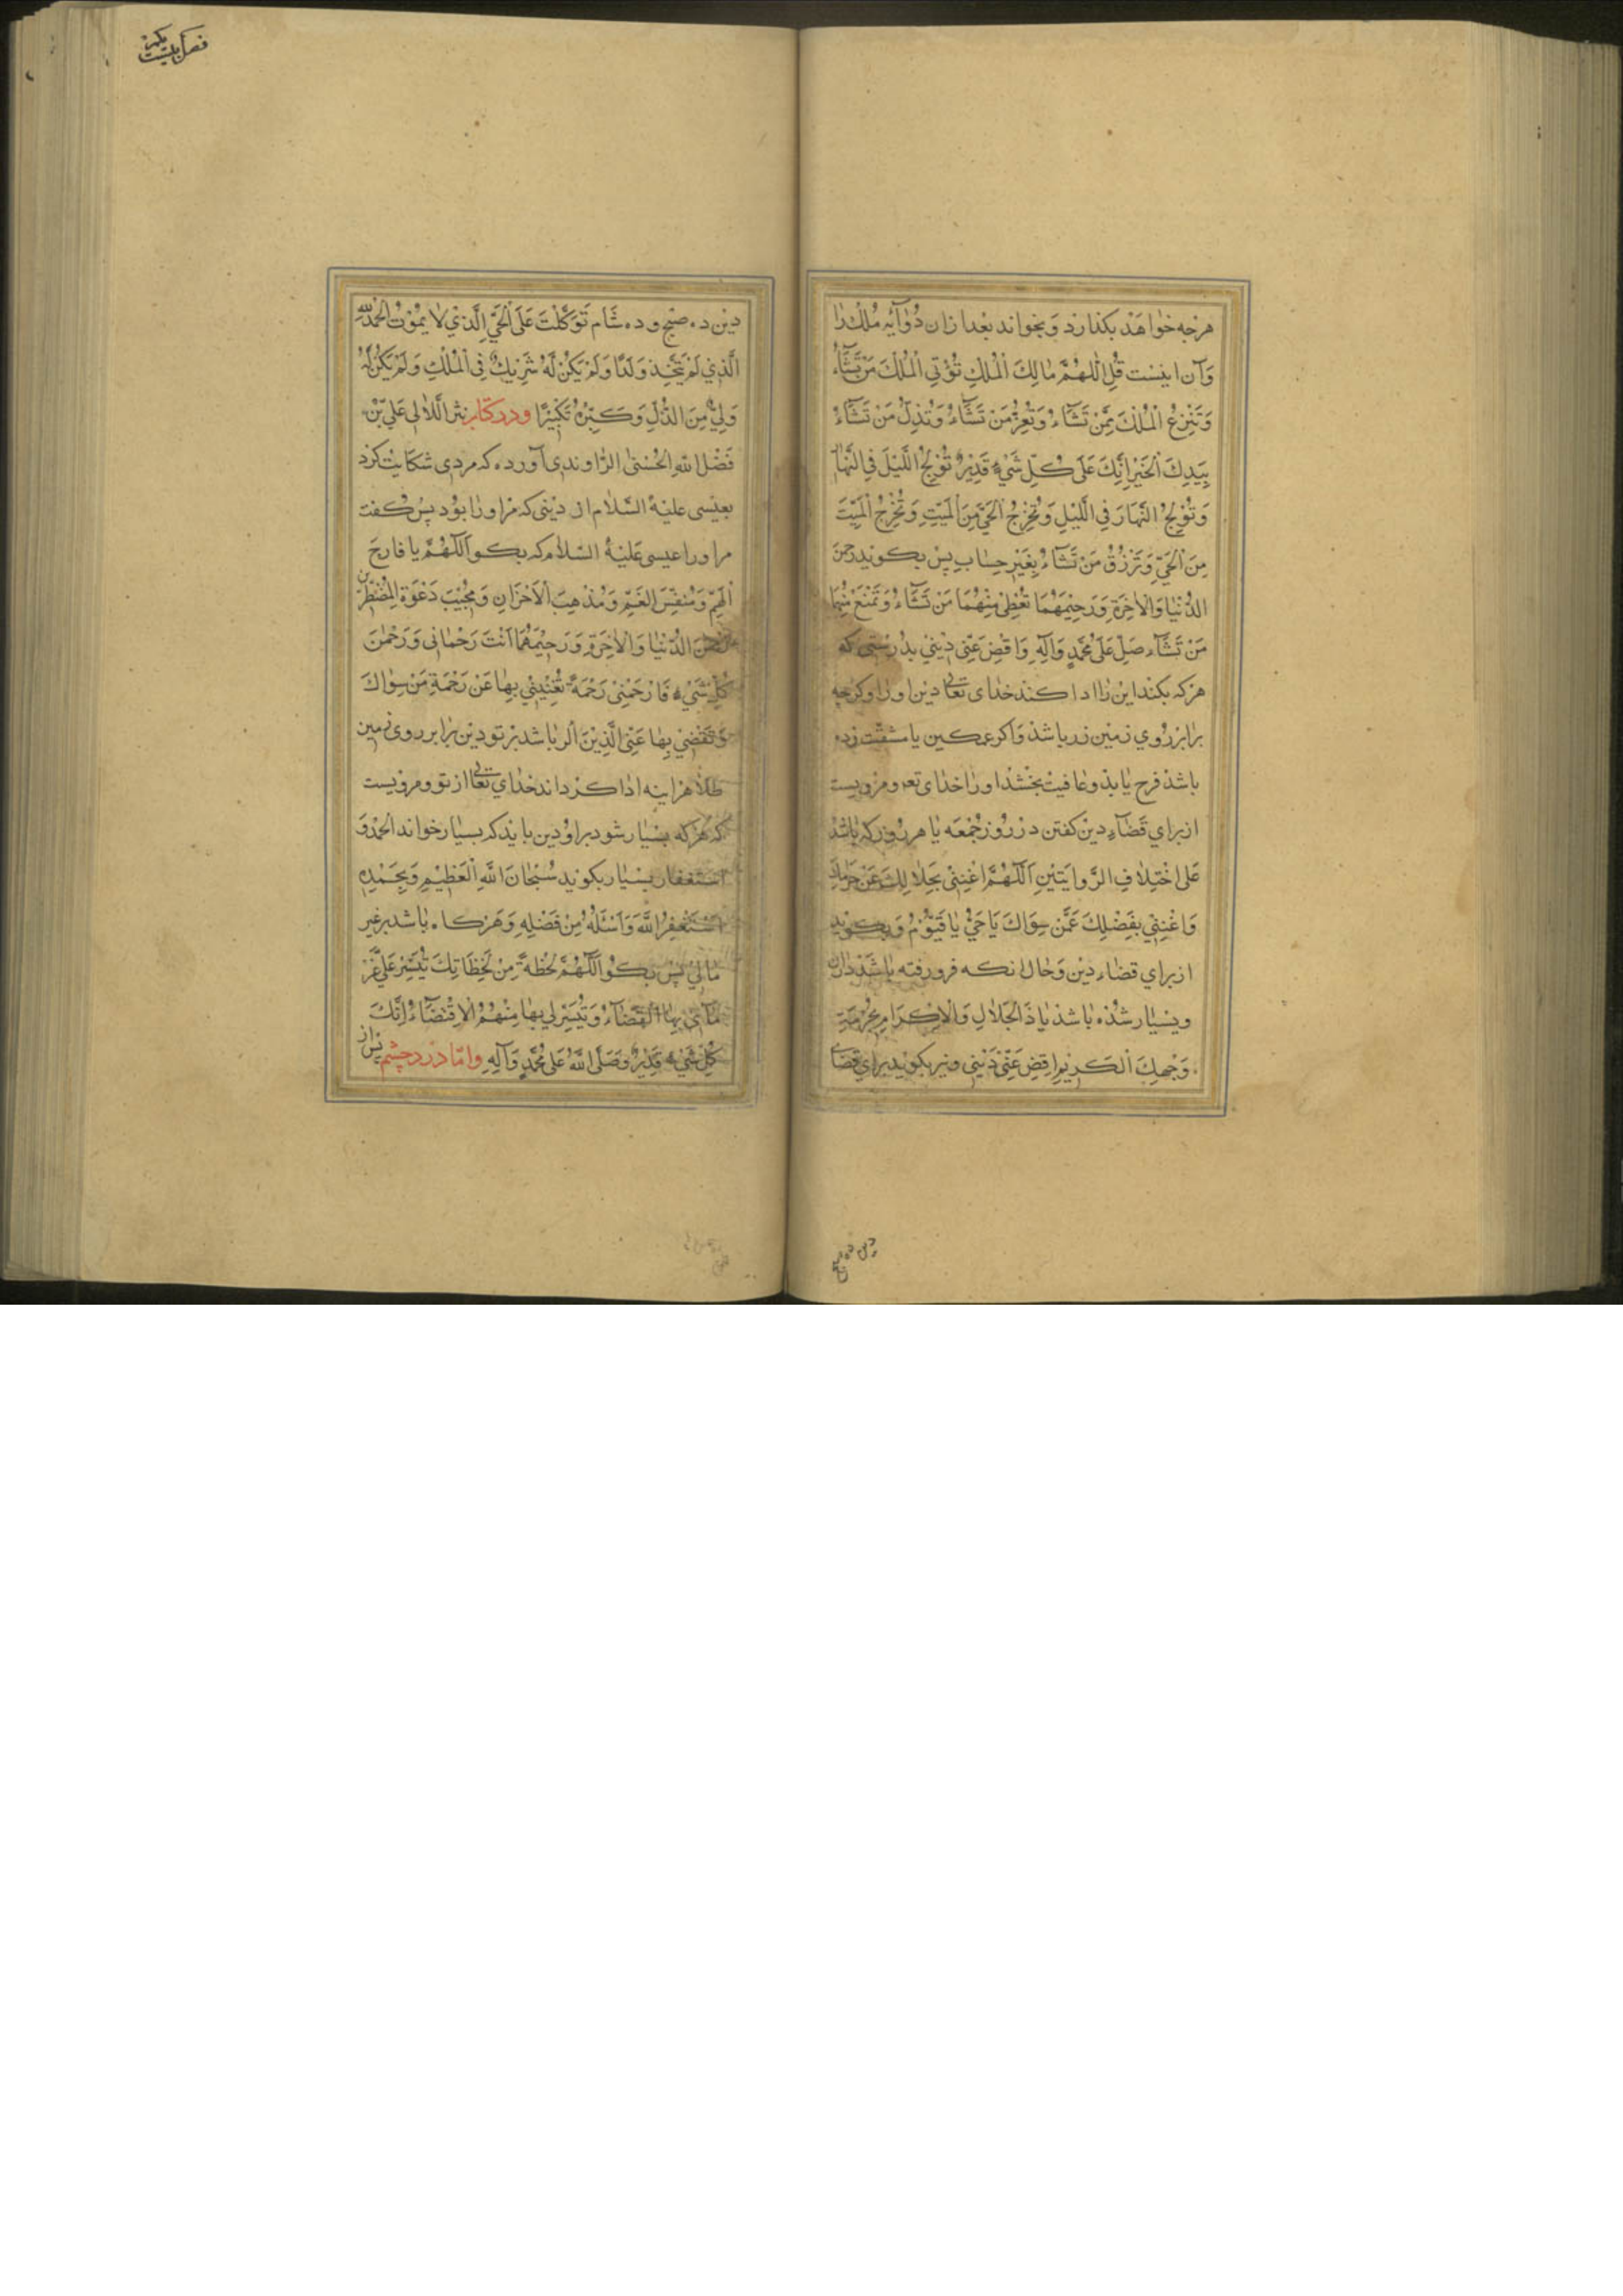 هرچه خواهد بکذارد و بخواند بعد ازان دو آیه ملک را
وَآن اینست قُلِ اللّٰهُمَّ مَالِكَ الْمُلْكِ تُؤْتِي الْمُلْكَ مَنْ تَشَآءُ
وَتَنْزِعُ الْمُلْكَ مِمَّنْ تَشَآءُ وَتُعِزُّ مَنْ تَشَآءُ وَتُذِلُّ مَنْ تَشَآءُ
بِيَدِكَ الْخَيْرُ اِنَّكَ عَلَى كُلِّ شَيْءٍ قَدِيْرٌ تُوْلِجُ اللَّيْلَ فِي النَّهَارِ
وَتُوْلِجُ النَّهَارَ فِي اللَّيْلِ وَتُخْرِجُ الْحَيَّ مِنَ الْمَيِّتِ وَتُخْرِجُ الْمَيِّتَ
مِنَ الْحَيِّ وَتَرْزُقُ مَنْ تَشَآءُ بِغَيْرِ حِسَابٍ پس بکوید رحمن
الدُّنْيَا وَالْاٰخِرَةِ وَرَحِيْمَهُمَا تُعْطِيْ مِنْهُمَا مَنْ تَشَآءُ وَتَمْنَعُ مِنْهُمَا
مَنْ تَشَآءُ صَلِّ عَلَى مُحَمَّدٍ وَآلِهِ وَاقْضِ عَنِّي دَيْنِي بدرستی که
هرکه بکند این را ادا کند خدای تعالی دین او را و کرچه
برابر روی زمین زر باشد و اکر غمکین یا مشقت زده
باشد فرح یابد و عافیت بخشد او را خدای تعه و مرویست
از برای قضآء دین کفتن در روز جمعه یا هر روز که باشد
عَلَى اخْتِلَافِ الرِّوَايَتَيْنِ اَللّٰهُمَّ اَغْنِنِي بِحَلَالِكَ عَنْ حَرَامِكَ
وَاَغْنِنِي بِفَضْلِكَ عَمَّنْ سِوَاكَ يَا حَيُّ يَا قَيُّوْمُ و بکوید
از برای قضاء دین و حال انکه فرو رفته باشد دران
و بسیار شده باشد يَا ذَا الْجَلَالِ وَالْاِكْرَامِ بِحُرْمَةِ
وَجْهِكَ الْكَرِيْمِ اقْضِ عَنِّي دَيْنِي و نیز بکوید برای قضاء
دین ده صبح
فصل بیست یکم
دین ده صبح و ده شام تَوَكَّلْتُ عَلَى الْحَيِّ الَّذِي لَا يَمُوْتُ الْحَمْدُ لِلّٰهِ
الَّذِي لَمْ يَتَّخِذْ وَلَدًا وَلَمْ يَكُنْ لَهُ شَرِيكٌ فِي الْمُلْكِ وَلَمْ يَكُنْ لَهُ
وَلِيٌّ مِنَ الذُّلِّ وَكَبِّرْهُ تَكْبِيْرًا و در کتاب نثر اللآلی علی بن
فَضْلِ اللّٰهِ الْحُسْنَى الرَّاوَنْدِي آورده که مردی شکایت کرد
بعیسی علیه السّلام از دینی که مر او را بود پس کفت
مر او را عیسی علیه السّلام که بکو اَللّٰهُمَّ يَا فَارِجَ
الْهَمِّ وَمُنَفِّسَ الْغَمِّ وَمُذْهِبَ الْاَحْزَانِ وَمُجِيْبَ دَعْوَةِ الْمُضْطَرِّيْنَ
رَحْمٰنَ الدُّنْيَا وَالْاٰخِرَةِ وَرَحِيْمَهُمَا اَنْتَ رَحْمَانِي وَرَحْمٰنَ
كُلِّ شَيْءٍ فَارْحَمْنِي رَحْمَةً تُغْنِيْنِي بِهَا عَنْ رَحْمَةِ مَنْ سِوَاكَ
وَتَقْضِي بِهَا عَنِّي الدَّيْنَ اکر باشد بر تو دین برابر روی زمین
طلا هراینه ادا کرداند خدای تعالی از تو و مرویست
که هرکه بسیار شود بر او دین باید که بسیار خواند الحمد و
استغفار بسیار بکوید سُبْحَانَ اللّٰهِ الْعَظِيْمِ وَبِحَمْدِهِ
اَسْتَغْفِرُ اللّٰهَ وَاَسْئَلُهُ مِنْ فَضْلِهِ و هرکاه باشد بر غیر
مالی پس بکو اَللّٰهُمَّ لَحْظَةً مِنْ لَحَظَاتِكَ تُيَسِّرُ عَلَى
بِهَا الْقَضَآءَ وَتُيَسِّرُ لِي بِهَا مِنْهُمُ الْاِقْتِضَآءَ اِنَّكَ
كُلِّ شَيْءٍ قَدِيْرٌ وَصَلَّى اللّٰهُ عَلَى مُحَمَّدٍ وَآلِهِ و امّا درد چشم پس از